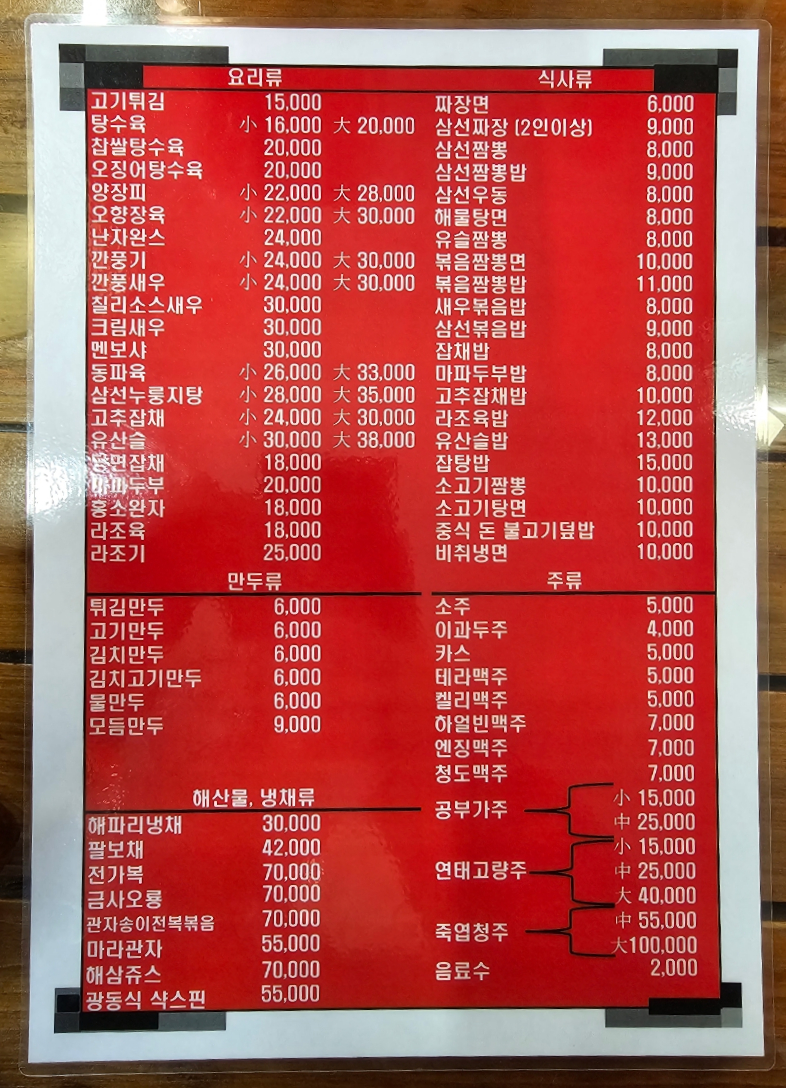 요리류
고기튀김 15,000
탕수육 小 16,000 大 20,000
찹쌀탕수육 20,000
오징어탕수육 20,000
양장피 小 22,000 大 28,000
오향장육 小 22,000 大 30,000
난자완스 24,000
깐풍기 小 24,000 大 30,000
깐풍새우 小 24,000 大 30,000
칠리소스새우 30,000
크림새우 30,000
멘보샤 30,000
동파육 小 26,000 大 33,000
삼선누룽지탕 小 28,000 大 35,000
고추잡채 小 24,000 大 30,000
유산슬 小 30,000 大 38,000
당면잡채 18,000
마파두부 20,000
홍소완자 18,000
라조육 18,000
라조기 25,000
만두류
튀김만두 6,000
고기만두 6,000
김치만두 6,000
김치고기만두 6,000
물만두 6,000
모듬만두 9,000
해산물, 냉채류
해파리냉채 30,000
팔보채 42,000
전가복 70,000
금사오룡 70,000
관자송이전복볶음 70,000
마라관자 55,000
해삼쥬스 70,000
광동식 샥스핀 55,000
식사류
짜장면 6,000
삼선짜장 (2인이상) 9,000
삼선짬뽕 8,000
삼선짬뽕밥 9,000
삼선우동 8,000
해물탕면 8,000
유슬짬뽕 8,000
볶음짬뽕면 10,000
볶음짬뽕밥 11,000
새우볶음밥 8,000
삼선볶음밥 9,000
잡채밥 8,000
마파두부밥 8,000
고추잡채밥 10,000
라조육밥 12,000
유산슬밥 13,000
잡탕밥 15,000
소고기짬뽕 10,000
소고기탕면 10,000
중식 돈 불고기덮밥 10,000
비취냉면 10,000
주류
소주 5,000
이과두주 4,000
카스 5,000
테라맥주 5,000
켈리맥주 5,000
하얼빈맥주 7,000
엔징맥주 7,000
청도맥주 7,000
공부가주 小 15,000
中 25,000
연태고량주 小 15,000
中 25,000
大 40,000
죽엽청주 中 55,000
大100,000
음료수 2,000